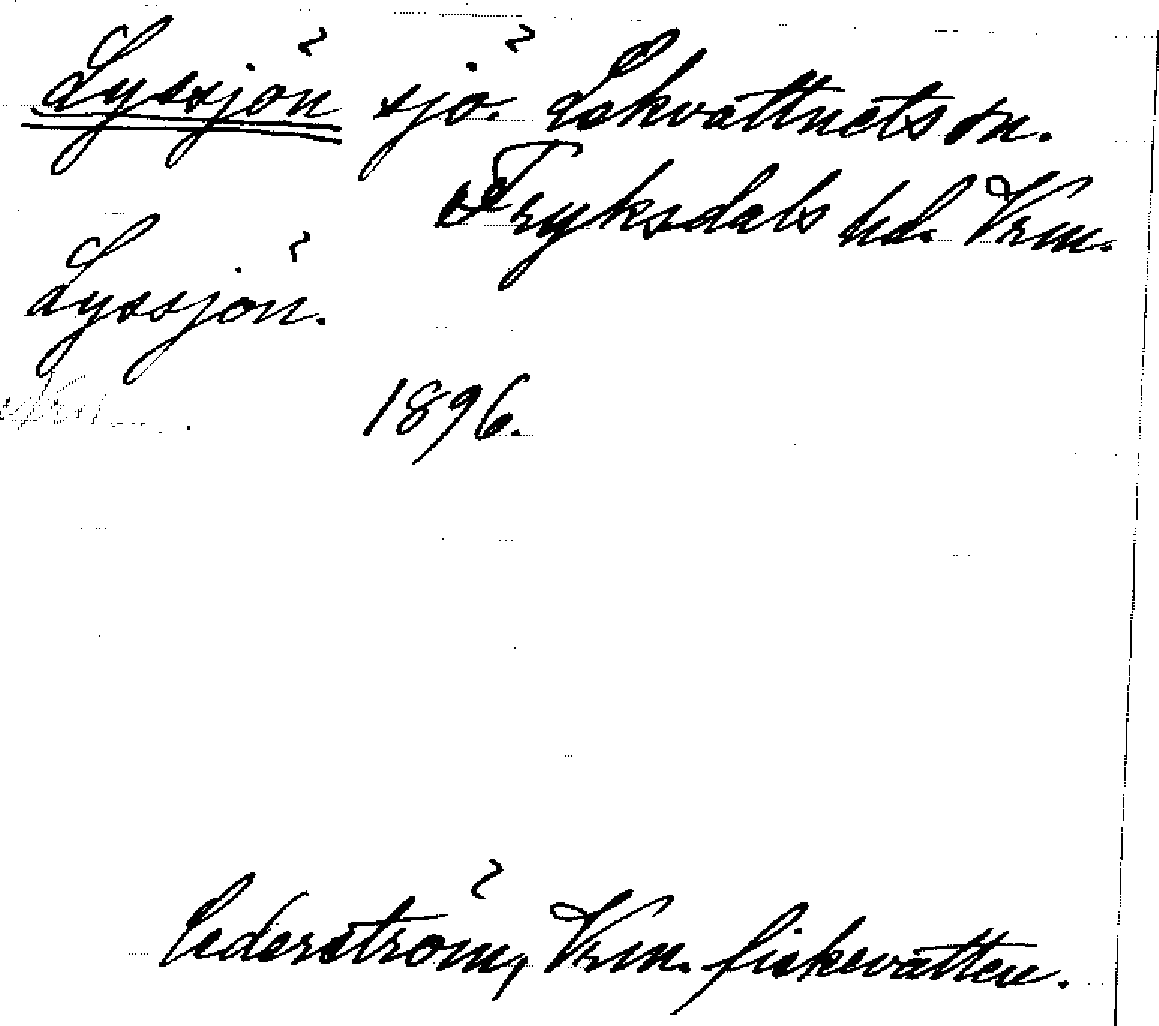 Lyssjön sjö. Lekvattnets sn.
Fryksdals hd. Vrm.
Lyssjön.
1896.
Cederström, Vrm. fiskevatten.